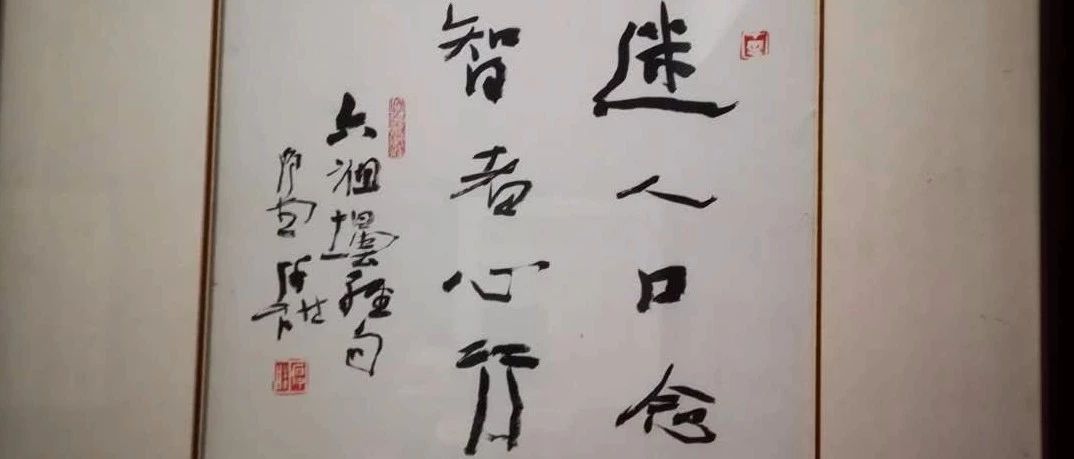 迷人口念
智者心行
六祖壇經句